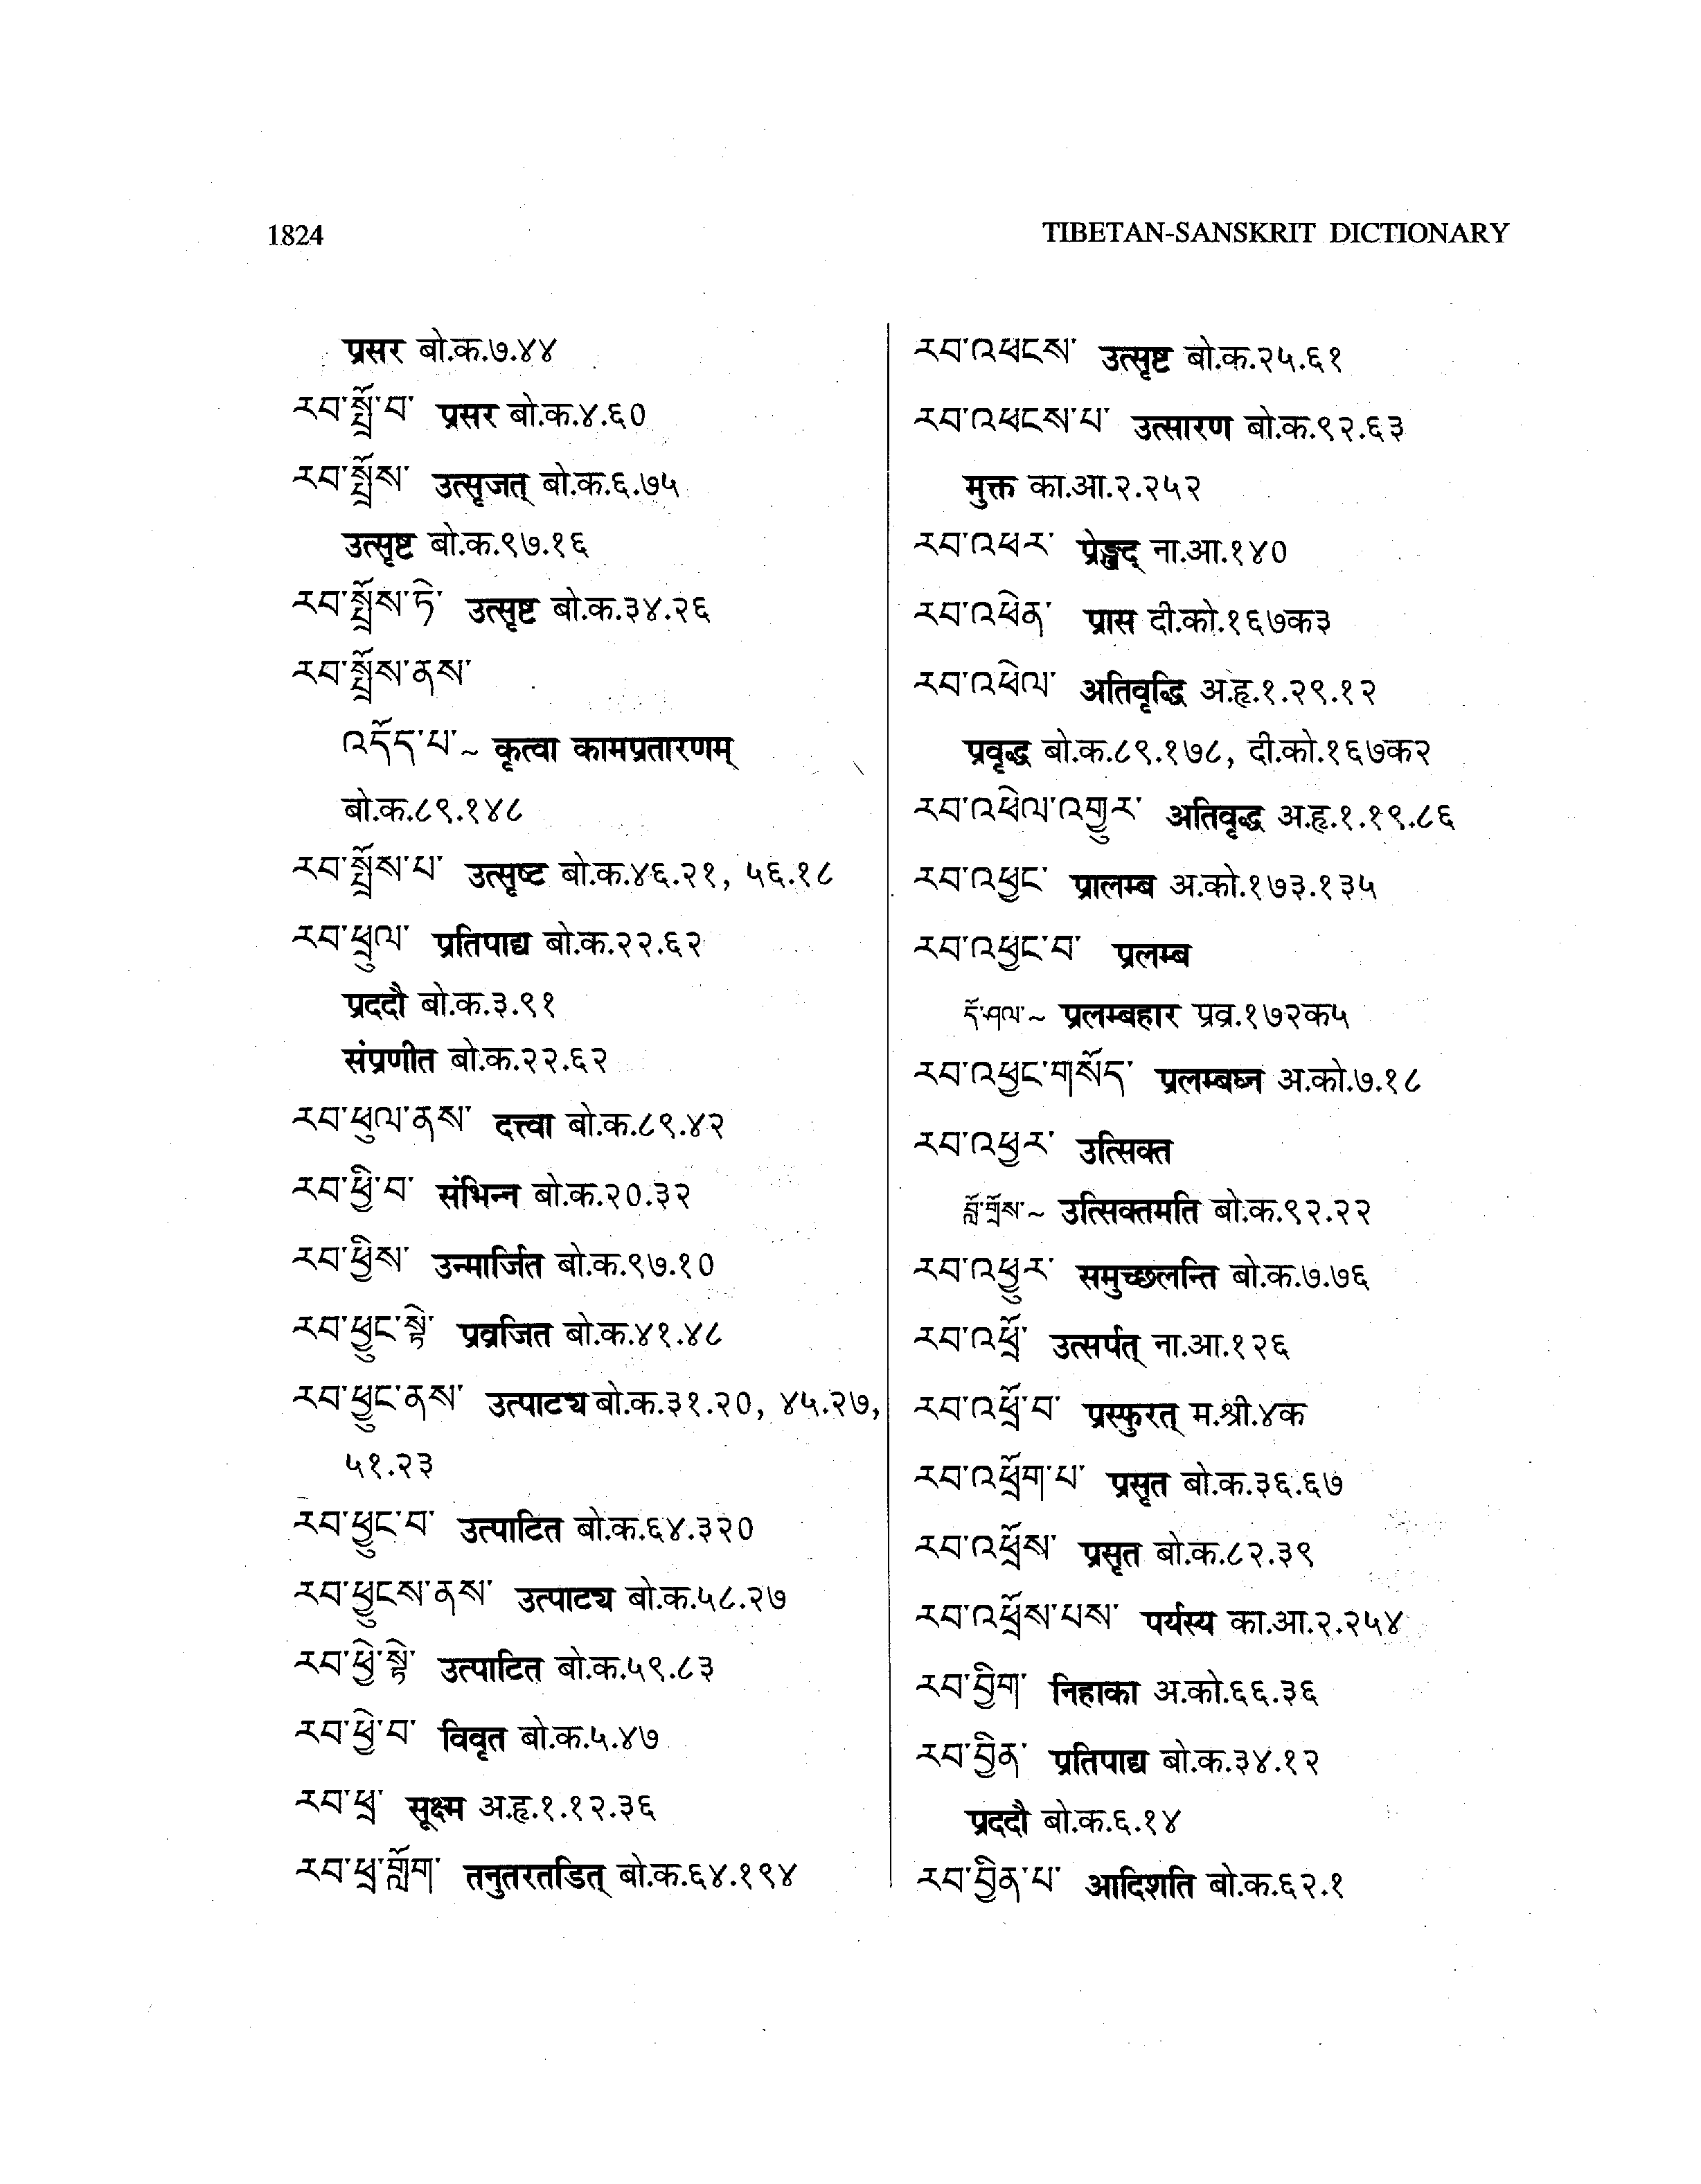 1824
TIBETAN-SANSKRIT DICTIONARY
प्रसर बो.क.७.४४
རབ་སྤྲོ་བ་ प्रसर बो.क.४.६०
རབ་སྤྲོས་ उत्सृजत् बो.क.६.७५
उत्सृष्ट बो.क.९७.१६
རབ་སྤྲོས་ཏེ་ उत्सृष्ट बो.क.३४.२६
རབ་སྤྲོས་ནས་
འདོད་པ་~ कृत्वा कामप्रतारणम्
बो.क.८९.१४८
རབ་སྤྲོས་པ་ उत्सृष्ट बो.क.४६.२१, ५६.१८
རབ་ཕྲུལ་ प्रतिपाद्य बो.क.२२.६२
प्रददौ बो.क.३.९१
संप्रणीत बो.क.२२.६२
རབ་ཕུལ་ནས་ दत्त्वा बो.क.८९.४२
རབ་ཕྱི་བ་ संभिन्न बो.क.२०.३२
རབ་ཕྱིས་ उन्मार्जित बो.क.९७.१०
རབ་ཕྱུང་སྟེ་ प्रव्रजित बो.क.४१.४८
རབ་ཕྱུང་ནས་ उत्पाट्य बो.क.३१.२०, ४५.२७,
५१.२३
རབ་ཕྱུང་བ་ उत्पाटित बो.क.६४.३२०
རབ་ཕྱུངས་ནས་ उत्पाट्य बो.क.५८.२७
རབ་ཕྱེ་སྟེ་ उत्पाटित बो.क.५९.८३
རབ་ཕྱེ་བ་ विवृत बो.क.५.४७
རབ་ཕྲ་ सूक्ष्म अ.हृ.१.१२.३६
རབ་ཕྲ་གློག་ तनुतरतडित् बो.क.६४.१९४
རབ་འཕངས་ उत्सृष्ट बो.क.२५.६१
རབ་འཕངས་པ་ उत्सारण बो.क.९२.६३
मुक्त का.आ.२.२५२
རབ་འཕར་ प्रेङ्खद् ना.आ.१४०
རབ་འཕེན་ प्रास दी.को.१६७क३
རབ་འཕེལ་ अतिवृद्धि अ.हृ.१.२९.१२
प्रवृद्ध बो.क.८९.१७८, दी.को.१६७क२
རབ་འཕེལ་འགྱུར་ अतिवृद्ध अ.हृ.१.१९.८६
རབ་འཕྱང་ प्रालम्ब अ.को.१७३.१३५
རབ་འཕྱང་བ་ प्रलम्ब
དོ་ཤལ་~ प्रलम्बहार प्रव्र.१७२क५
རབ་འཕྱང་གསོད་ प्रलम्बघ्न अ.को.७.१८
རབ་འཕྱར་ उत्सिक्त
བློ་གྲོས་~ उत्सिक्तमति बो.क.९२.२२
རབ་འཕྱུར་ समुच्छलन्ति बो.क.७.७६
རབ་འཕྲོ་ उत्सर्पत् ना.आ.१२६
རབ་འཕྲོ་བ་ प्रस्फुरत् म.श्री.४क
རབ་འཕྲོག་པ་ प्रसृत बो.क.३६.६७
རབ་འཕྲོས་ प्रसृत बो.क.८२.३९
རབ་འཕྲོས་པས་ पर्यस्य का.आ.२.२५४
རབ་བྱིག་ निहाका अ.को.६६.३६
རབ་བྱིན་ प्रतिपाद्य बो.क.३४.१२
प्रददौ बो.क.६.१४
རབ་བྱིན་པ་ आदिशति बो.क.६२.१